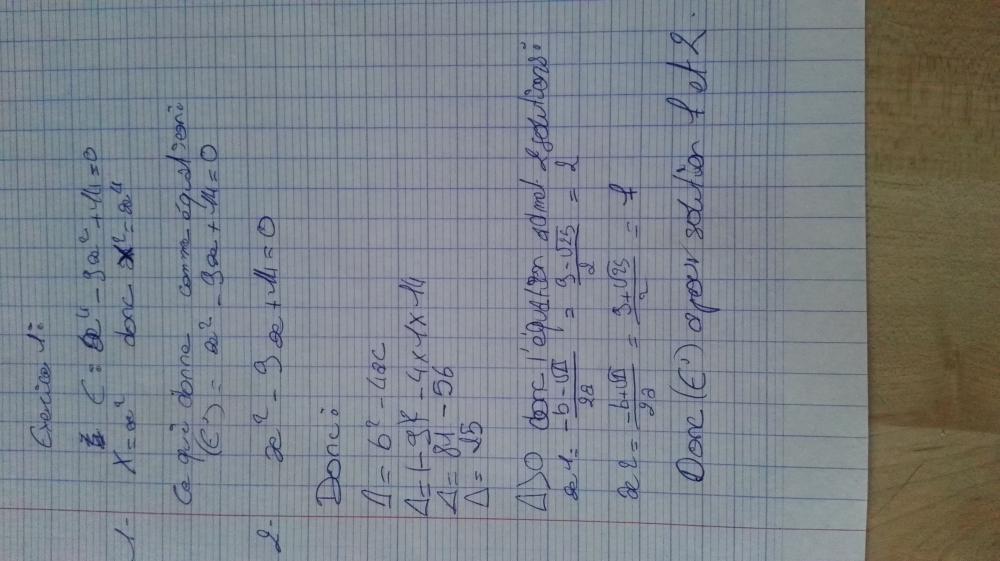 Exercice 1:
1- E: x⁴ - 9x² + 14 = 0
X = x² donc X² = x⁴
Ce qui donne comme équation:
(E') = x² - 9x + 14 = 0
2- x² - 9x + 14 = 0
Donc:
Δ = b² - 4ac
Δ = (-9)² - 4x1x14
Δ = 81 - 56
Δ = 25
Δ>0 donc l'équation admet 2 solutions:
x1 = -b-√Δ/2a = 9-√25/2 = 2
x2 = -b+√Δ/2a = 9+√25/2 = 7
Donc (E') a pour solution 7 et 2.